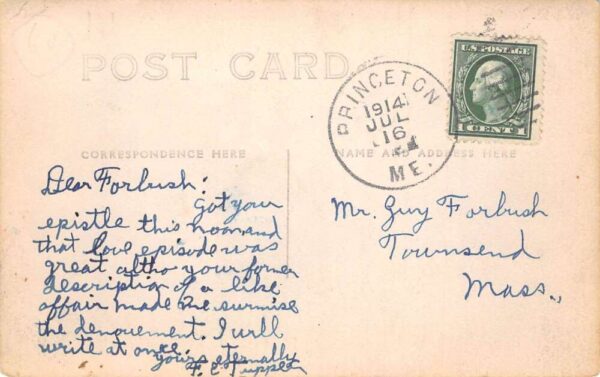 POST CARD
PRINCETON
1914
JUL
16
ME
U.S. POSTAGE
1 CENT 1
CORRESPONDENCE HERE
NAME AND ADDRESS HERE
Dear Forbush:
Got your
epistle this noon and
that love episode was
great altho your former
description of a like
affair made me surmise
the denouement. I will
write at once.
yours eternally
F. E. Tupper
Mr. Guy Forbush
Townsend
Mass.,